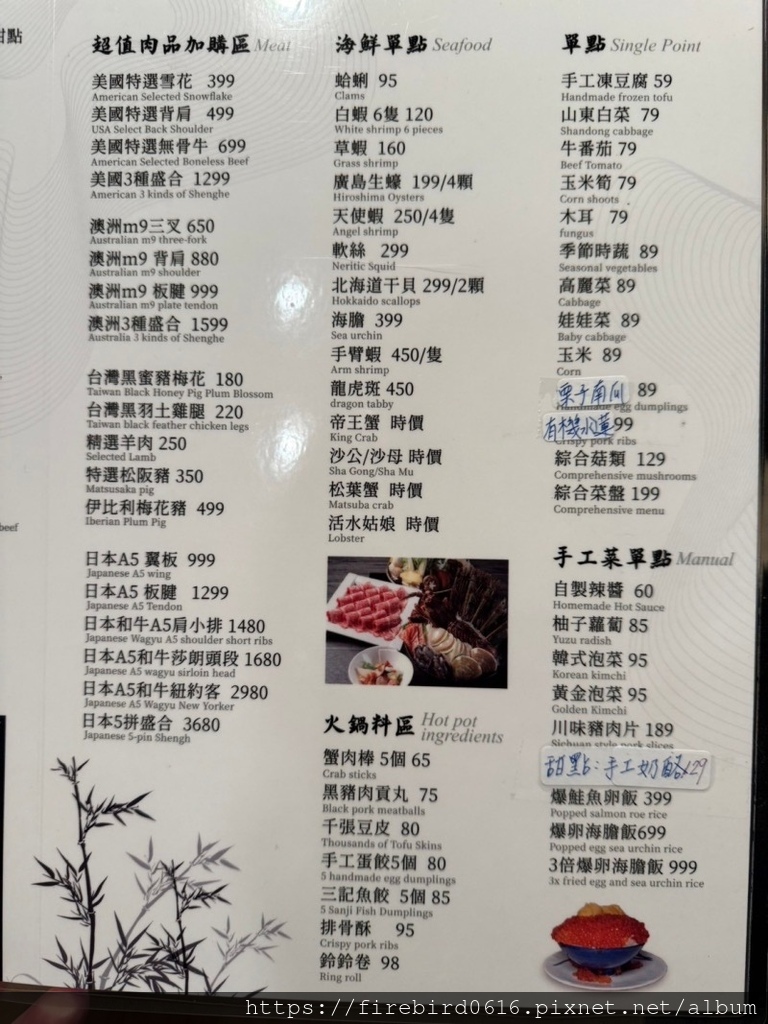 甜點
beef
超值肉品加購區 Meat
美國特選雪花 399
American Selected Snowflake
美國特選背肩 499
USA Select Back Shoulder
美國特選無骨牛 699
American Selected Boneless Beef
美國3種盛合 1299
American 3 kinds of Shenghe
澳洲m9三叉 650
Australian m9 three-fork
澳洲m9 背肩 880
Australian m9 shoulder
澳洲m9 板腱 999
Australian m9 plate tendon
澳洲3種盛合 1599
Australia 3 kinds of Shenghe
台灣黑蜜豬梅花 180
Taiwan Black Honey Pig Plum Blossom
台灣黑羽土雞腿 220
Taiwan black feather chicken legs
精選羊肉 250
Selected Lamb
特選松阪豬 350
Matsusaka pig
伊比利梅花豬 499
Iberian Plum Pig
日本A5 翼板 999
Japanese A5 wing
日本A5 板腱 1299
Japanese A5 Tendon
日本和牛A5肩小排 1480
Japanese Wagyu A5 shoulder short ribs
日本A5和牛莎朗頭段 1680
Japanese A5 wagyu sirloin head
日本A5和牛紐約客 2980
Japanese A5 Wagyu New Yorker
日本5拼盛合 3680
Japanese 5-pin Shengh
海鮮單點 Seafood
蛤蜊 95
Clams
白蝦 6隻 120
White shrimp 6 pieces
草蝦 160
Grass shrimp
廣島生蠔 199/4顆
Hiroshima Oysters
天使蝦 250/4隻
Angel shrimp
軟絲 299
Neritic Squid
北海道干貝 299/2顆
Hokkaido scallops
海膽 399
Sea urchin
手臂蝦 450/隻
Arm shrimp
龍虎斑 450
dragon tabby
帝王蟹 時價
King Crab
沙公/沙母 時價
Sha Gong/Sha Mu
松葉蟹 時價
Matsuba crab
活水姑娘 時價
Lobster
火鍋料區 Hot pot ingredients
蟹肉棒 5個 65
Crab sticks
黑豬肉貢丸 75
Black pork meatballs
千張豆皮 80
Thousands of Tofu Skins
手工蛋餃5個 80
5 handmade egg dumplings
三記魚餃 5個 85
5 Sanji Fish Dumplings
排骨酥 95
Crispy pork ribs
鈴鈴卷 98
Ring roll
單點 Single Point
手工凍豆腐 59
Handmade frozen tofu
山東白菜 79
Shandong cabbage
牛番茄 79
Beef Tomato
玉米筍 79
Corn shoots
木耳 79
fungus
季節時蔬 89
Seasonal vegetables
高麗菜 89
Cabbage
娃娃菜 89
Baby cabbage
玉米 89
Corn
栗子南瓜 89
Handmade egg dumplings
有機水蓮 99
Crispy pork ribs
綜合菇類 129
Comprehensive mushrooms
綜合菜盤 199
Comprehensive menu
手工菜單點 Manual
自製辣醬 60
Homemade Hot Sauce
柚子蘿蔔 85
Yuzu radish
韓式泡菜 95
Korean kimchi
黃金泡菜 95
Golden Kimchi
川味豬肉片 189
Sichuan style pork slices
甜點:手工奶酪$29
爆鮭魚卵飯 399
Popped salmon roe rice
爆卵海膽飯699
Popped egg sea urchin rice
3倍爆卵海膽飯 999
3x fried egg and sea urchin rice
https://firebird0616.pixnet.net/album